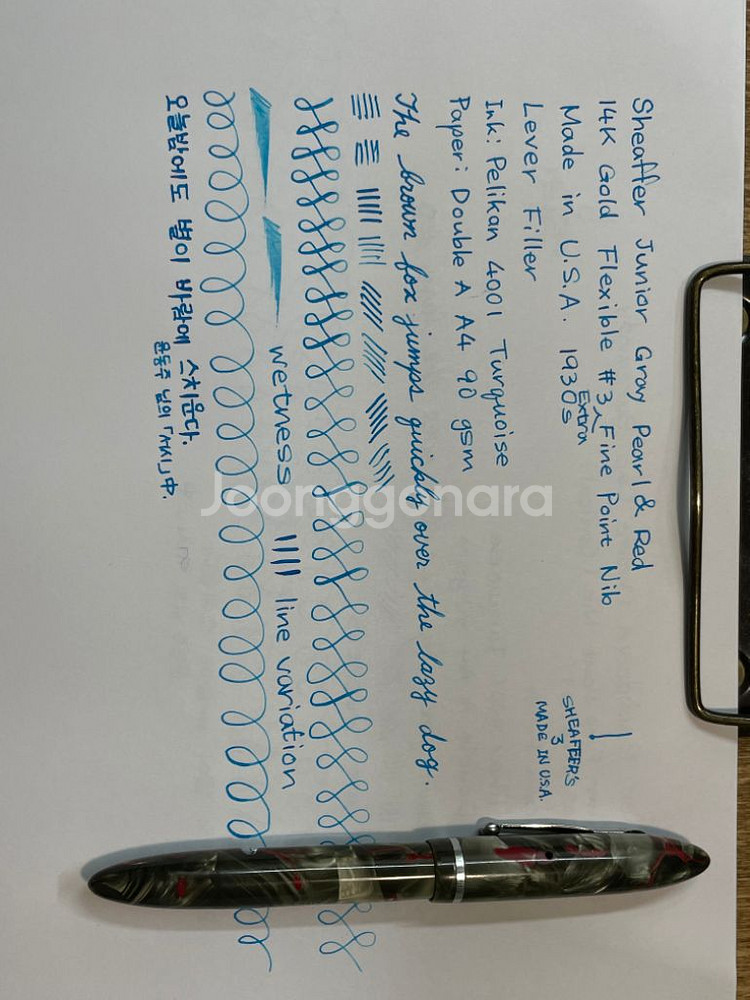 Sheaffer Junior Gray Pearl & Red
14K Gold Flexible #3 Extra Fine Point Nib
Made in U.S.A. 1930s
Lever Filler
Ink: Pelikan 4001 Turquoise
Paper: Double A A4 90 gsm
SHEAFFER'S
3
MADE IN U.S.A.
The brown fox jumps quickly over the lazy dog.
wetness
line variation
오늘밤에도 별이 바람에 스치운다.
윤동주 님의 「서시」 中.
Joonggonara